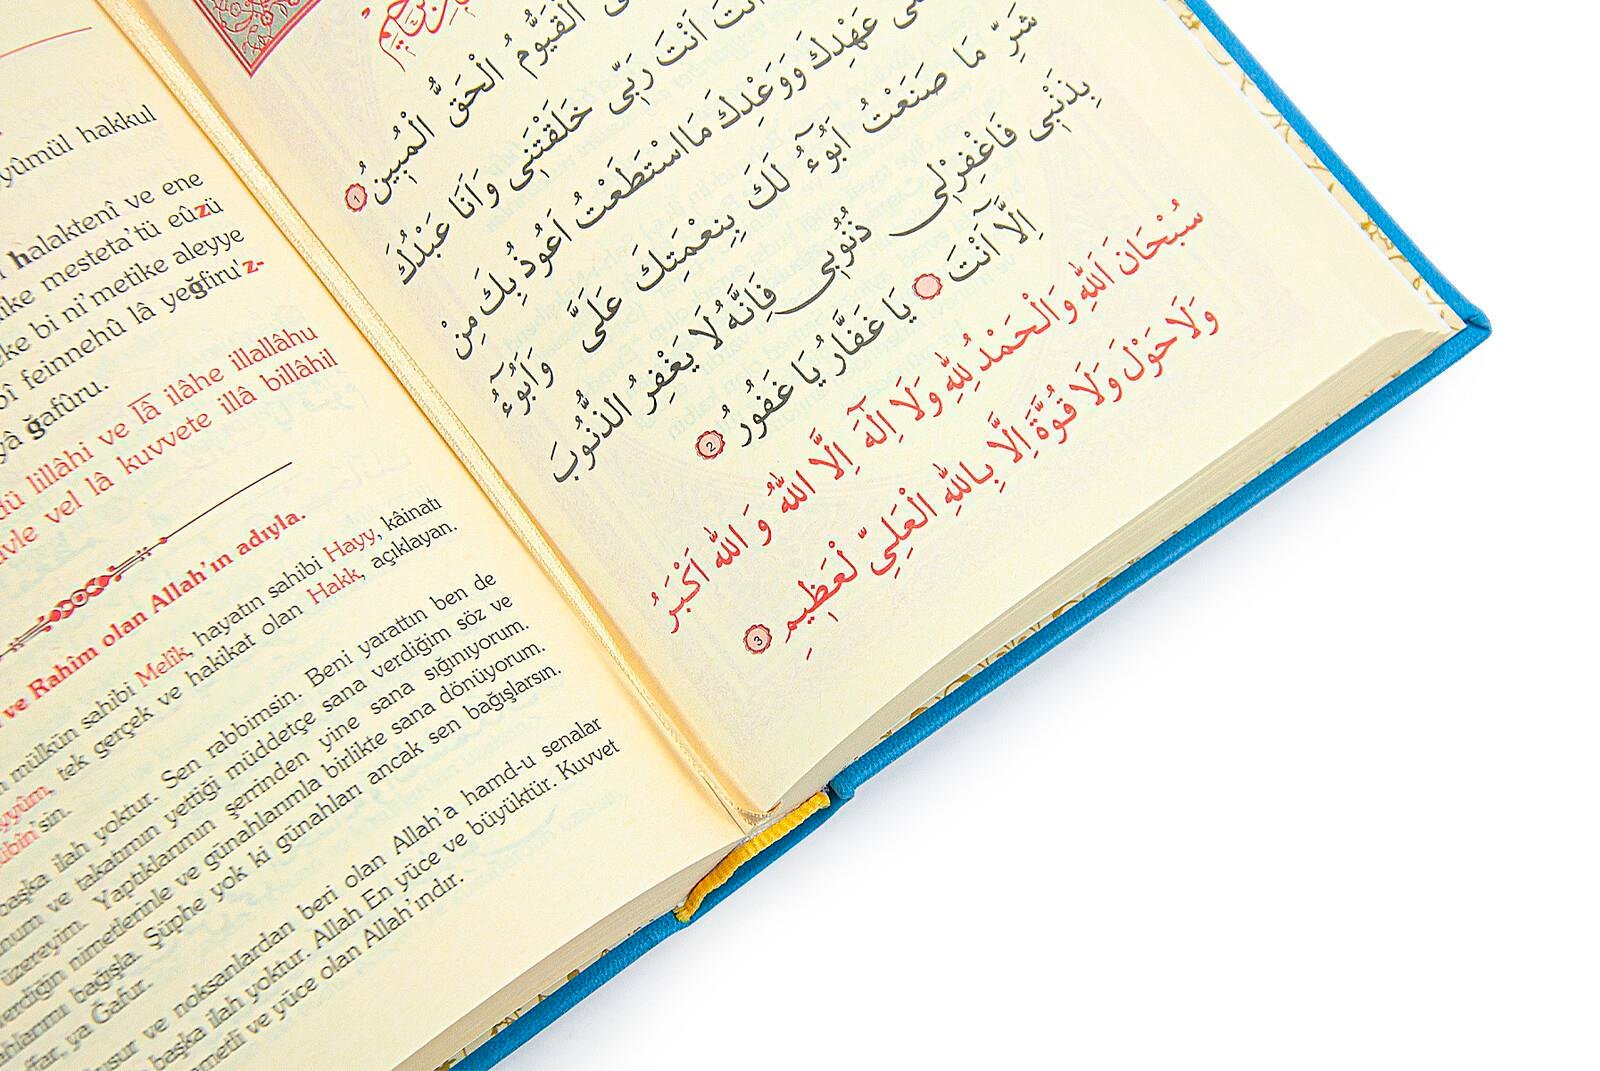 yyûmül hakkul
halaktenî ve ene
ike mesteta'tü eûzü
eke bi ni'metike aleyye
bî feinnehû lâ yeğfiru'z-
yâ ğafûru.
dü lillâhi ve lâ ilâhe illallâhu
vle vel lâ kuvvete illâ billâhil
ve Rahîm olan Allah'ın adıyla.
mülkün sahibi Melîk, hayatın sahibi Hayy, kâinatı
ayyûm, tek gerçek ve hakikat olan Hakk, açıklayan.
übîn'sin.
başka ilah yoktur. Sen rabbimsin. Beni yarattın ben de
num ve takatımın yettiği müddetçe sana verdiğim söz ve
üzereyim. Yaptıklarımın şerrinden yine sana sığınıyorum.
verdiğin nimetlerinle ve günahlarımla birlikte sana dönüyorum.
ahlarımı bağışla. Şüphe yok ki günahları ancak sen bağışlarsın.
ffar, ya Ğafur.
usur ve noksanlardan beri olan Allah'a hamd-u senalar
başka ilah yoktur. Allah En yüce ve büyüktür. Kuvvet
ametli ve yüce olan Allah'ındır.
الْقَيُّومُ الْحَقُّ الْمُبِينُ ١
اَنْتَ اَنْتَ رَبِّى خَلَقْتَنِى وَاَنَا عَبْدُكَ
عَهْدِكَ وَوَعْدِكَ مَااسْتَطَعْتُ اَعُوذُ بِكَ مِنْ
شَرِّ مَا صَنَعْتُ اَبُٓوءُ لَكَ بِنِعْمَتِكَ عَلَىَّ وَاَبُٓوءُ
بِذَنْبِى فَاغْفِرْلِى ذُنُوبِى فَاِنَّهُ لَا يَغْفِرُ الذُّنُوبَ
اِلَّٓا اَنْتَ يَا غَفَّارُ يَا غَفُورُ ٢
سُبْحَانَ اللّٰهِ وَالْحَمْدُ لِلّٰهِ وَلَٓا اِلٰهَ اِلَّا اللّٰهُ وَ اللّٰهُ اَكْبَرُ
وَلَا حَوْلَ وَلَا قُوَّةَ اِلَّا بِاللّٰهِ الْعَلِىِّ لْعَظِيمِ ٣